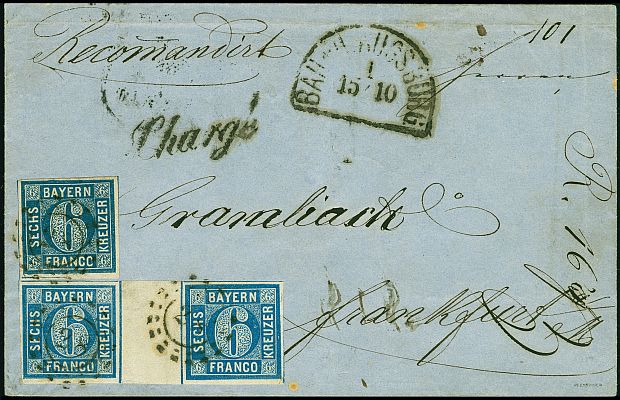 Recomandirt
101
BAHNH. AUGSBURG
1
15 10
Chargé
Gramliack
R. 16
Frankfurt a/M
BAYERN
SECHS 6 KREUZER
FRANCO
BAYERN
SECHS 6 KREUZER
FRANCO
BAYERN
SECHS 6 KREUZER
FRANCO